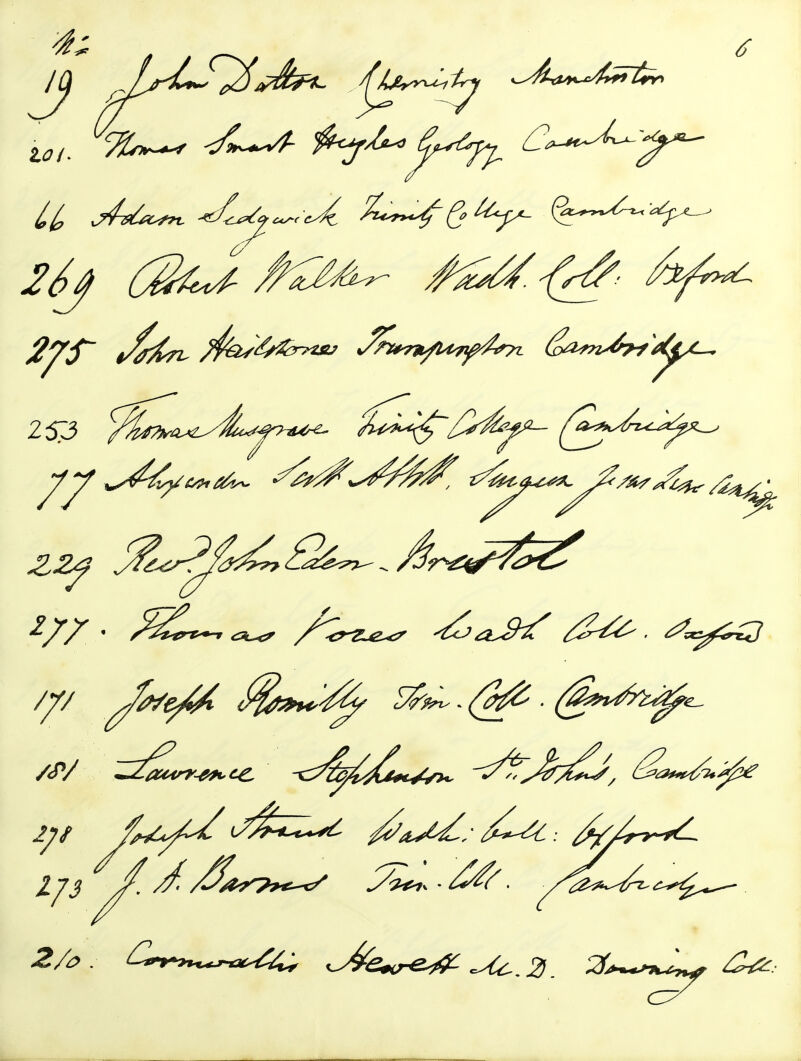 No.
6
19 John Dalton Chemistry Manchester
201. Thomas Smart Hughes Geology Cambridge
66 Adam Sedgwick Trinity College Cambridge
269 Robert Walker Wadh. Coll: Oxford
275 John Hailstone Trumpington Cambridge
253 Thomas Musgrave Trinity College Cambridge
77 Alexander Scott Abbott, Surgeon Jesus Lane Cambridge
229 Revd. John Eden - Bristol
277. Thomas Vores Wadh Coll. Oxford
171 Joseph Romilly Trin. Coll. Cambridge
181 Lawrence Stephenson St. John's, Cambridge
278 Joseph Wadh: Coll: Oxford
273 J. A. Barnes Trin. Coll. Cambridge
210. Cornwallis Hewett M.D. Downing Coll: